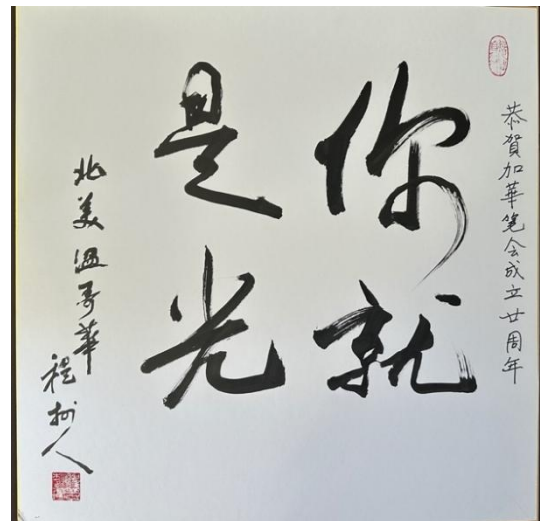 恭賀加華笔会成立廿周年
你就
是光
北美温哥華
程树人